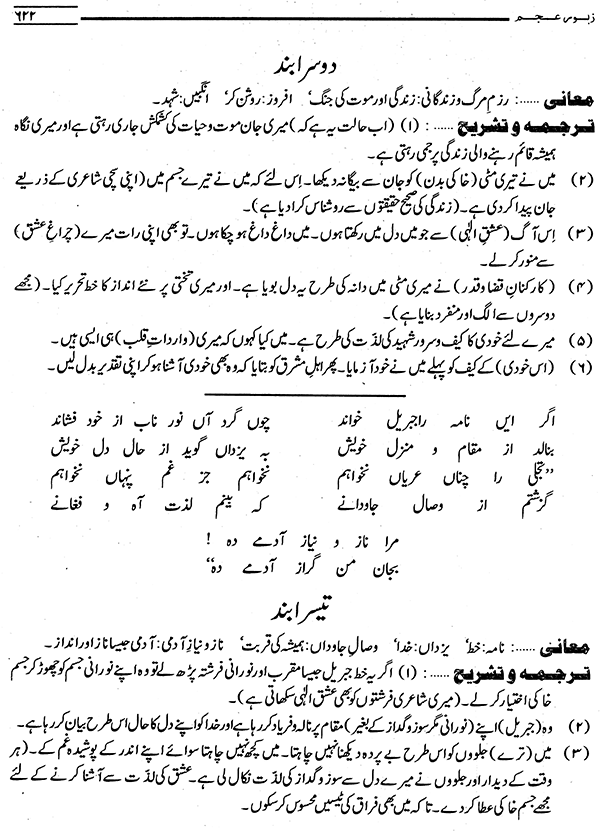 زبورِ عجم ۶۲۲
دوسرا بند
معانی ...... : رزمِ مرگ و زندگانی: زندگی اور موت کی جنگ‘ افروز: روشن کر‘ انگبیں: شہد۔
ترجمہ و تشریح ...... : (۱) (اب حالت یہ ہے کہ) میری جان موت و حیات کی کشمکش جاری رہتی ہے اور میری نگاہ
ہمیشہ قائم رہنے والی زندگی پر جمی رہتی ہے۔
(۲) میں نے تیری مٹی (خاکی بدن) کو جان سے بیگانہ دیکھا۔ اِس لئے کہ میں نے تیرے جسم میں (اپنی سچی شاعری کے ذریعے
جان پیدا کر دی ہے۔ (زندگی کی صحیح حقیقتوں سے روشناس کرا دیا ہے)۔
(۳) اِس آگ (عشقِ الٰہی) سے جو میں دل میں رکھتا ہوں۔ میں داغ داغ ہو چکا ہوں۔ تو بھی اپنی رات میرے (چراغِ عشق)
سے منور کر لے۔
(۴) (کارکنانِ قضا و قدر) نے میری مٹی میں دانہ کی طرح یہ دل بویا ہے۔ اور میری تختی پر نئے انداز کا خط تحریر کیا۔ (مجھے
دوسروں سے الگ اور منفرد بنایا ہے)۔
(۵) میرے لئے خودی کا کیف و سرور شہید کی لذت کی طرح ہے۔ میں کیا کہوں کہ میری (وارداتِ قلب) ہی ایسی ہیں۔
(۶) (اس خودی) کے کیف کو پہلے میں نے خود آزمایا۔ پھر اہلِ مشرق کو بتایا کہ وہ بھی خودی آشنا ہو کر اپنی تقدیر بدل لیں۔
اگر ایں نامہ را جبریل خواند چوں گرد آں نور ناب از خود فشاند
بنالد از مقام و منزل خویش بہ یزداں گوید از حال دل خویش
”تجلی را چناں عریاں نخواہم نخواہم جز غم پنہاں نخواہم
گزشتم از وصال جاودانے کہ بینم لذت آہ و فغانے
مرا ناز و نیاز آدمے دہ !
بجان من گداز آدمے دہ“
تیسرا بند
معانی ...... : نامہ: خط‘ یزداں: خدا‘ وصالِ جاوداں: ہمیشہ کی قربت‘ ناز و نیازِ آدمی: آدمی جیسا ناز اور انداز۔
ترجمہ و تشریح ...... : (۱) اگر یہ خط جبریل جیسا مقرب اور نورانی فرشتہ پڑھ لے تو وہ اپنے نورانی جسم کو چھوڑ کر جسمِ
خاکی اختیار کر لے۔ (میری شاعری فرشتوں کو بھی عشقِ الٰہی سکھاتی ہے)۔
(۲) وہ (جبریل) اپنے (نورانی مگر سوز و گداز کے بغیر) مقام پر نالہ و فریاد کر رہا ہے اور خدا کو اپنے دل کا حال اس طرح بیان کر رہا ہے۔
(۳) میں (ترے) جلووں کو اس طرح بے پردہ دیکھنا نہیں چاہتا۔ میں کچھ نہیں چاہتا سوائے اپنے اندر کے پوشیدہ غم کے۔ (ہر
وقت کے دیدار اور جلووں نے میرے دل سے سوز و گداز کی لذت نکال لی ہے۔ عشق کی لذت سے آشنا کرنے کے لئے
مجھے جسمِ خاکی عطا کر دے۔ تاکہ میں بھی فراق کی ٹیسیں محسوس کر سکوں۔